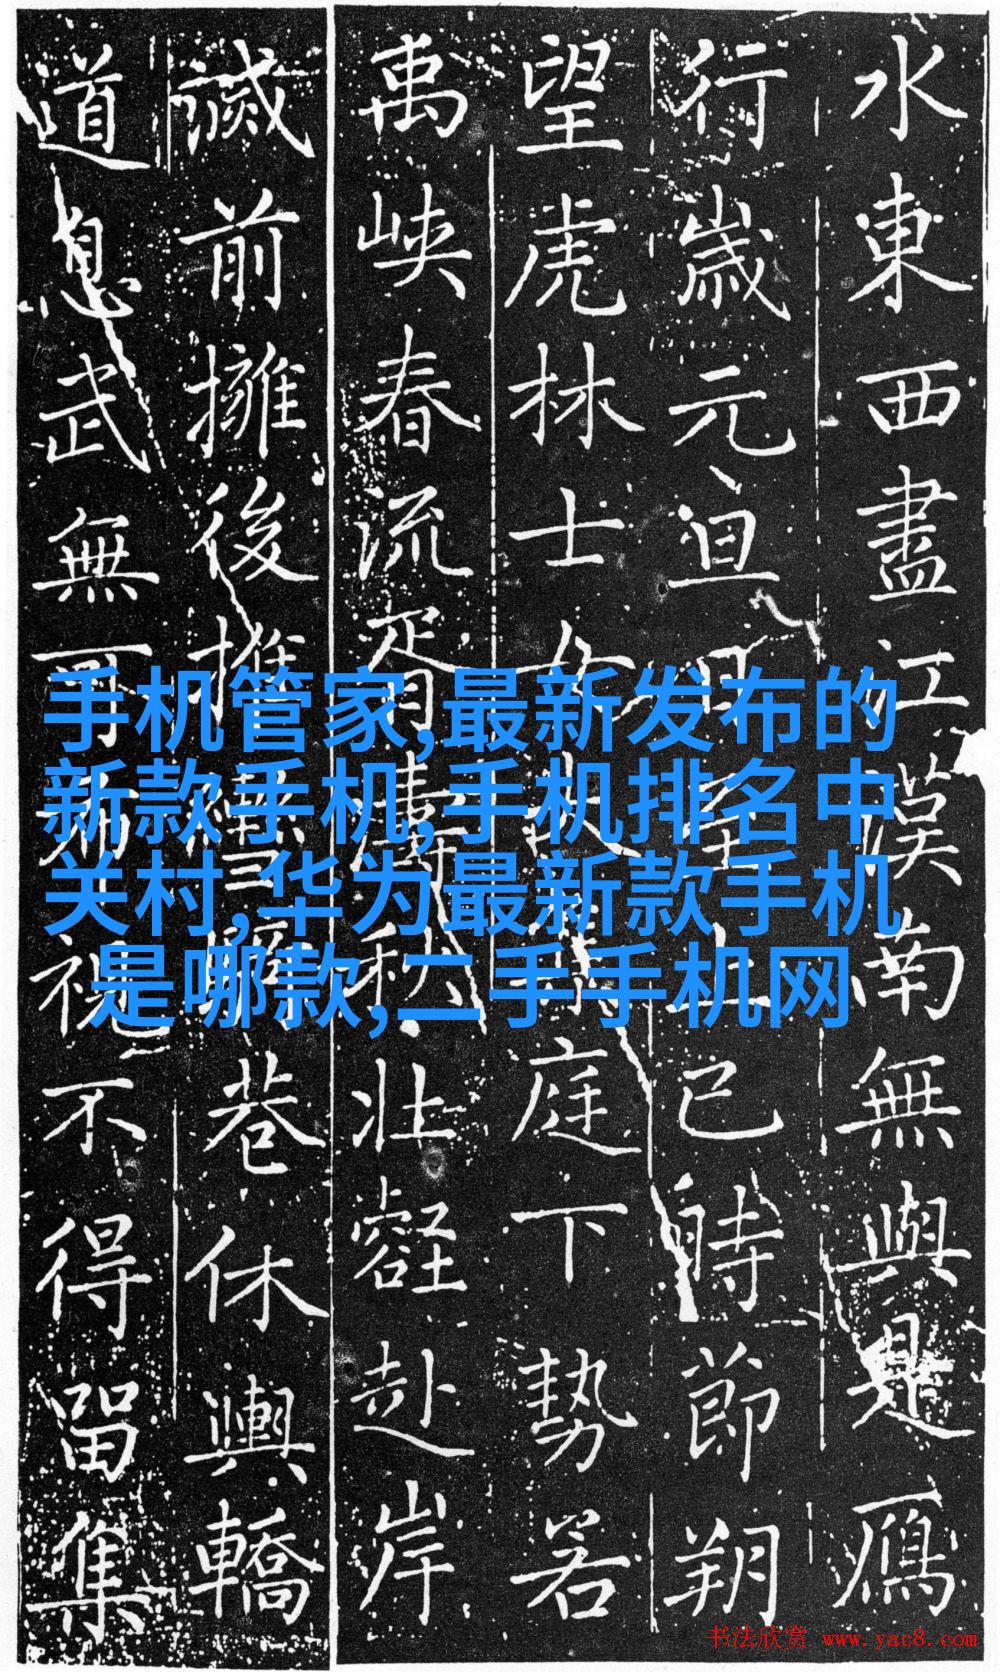 手机管家,最新发布的
新款手机,手机排名中
关村,华为最新款手机
是哪款,二手手机网
水東西盡江漢南無與是鴈
行歲元旦至上巳時節朔
望虎林士女庭下勢若
禹峽春流胥濤秋壯壑赴岸
前擁後推巷休輿轎
道息武無可視不得留集
书法欣赏 www.yac8.com